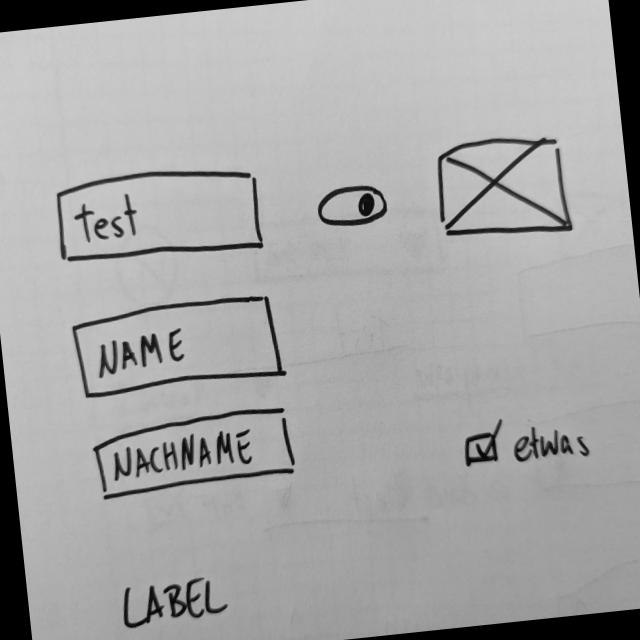 test
NAME
NACHNAME
etwas
LABEL